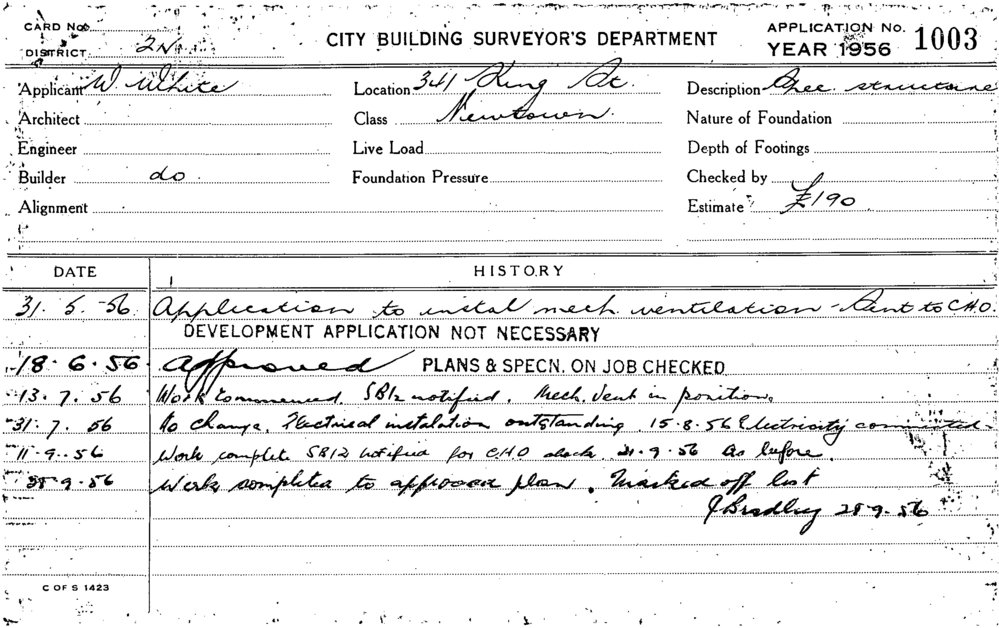 CARD No.
DISTRICT 2N
CITY BUILDING SURVEYOR'S DEPARTMENT
APPLICATION No. 1003
YEAR 1956
Applicant W. White
Location 341 King St.
Description structure
Architect
Class Newtown.
Nature of Foundation
Engineer
Live Load
Depth of Footings
Builder do
Foundation Pressure
Checked by
Alignment
Estimate £190
DATE HISTORY
31. 5. 56. Application to instal mech ventilation - to C.H.O.
DEVELOPMENT APPLICATION NOT NECESSARY
18. 6. 56 Approved PLANS & SPECN. ON JOB CHECKED
13. 7. 56 Work commenced. SB12 notified. Mech. Vent in position.
31. 7. 56 No change. Electrical instalation outstanding. 15.8.56 Electricity
11. 9. 56 Work complete SB12 notified for CHO check 21.9.56 As before.
28. 9. 56 Work completed to approved plan. Marked off list
J Bradley 28 9. 56
C OF S 1423